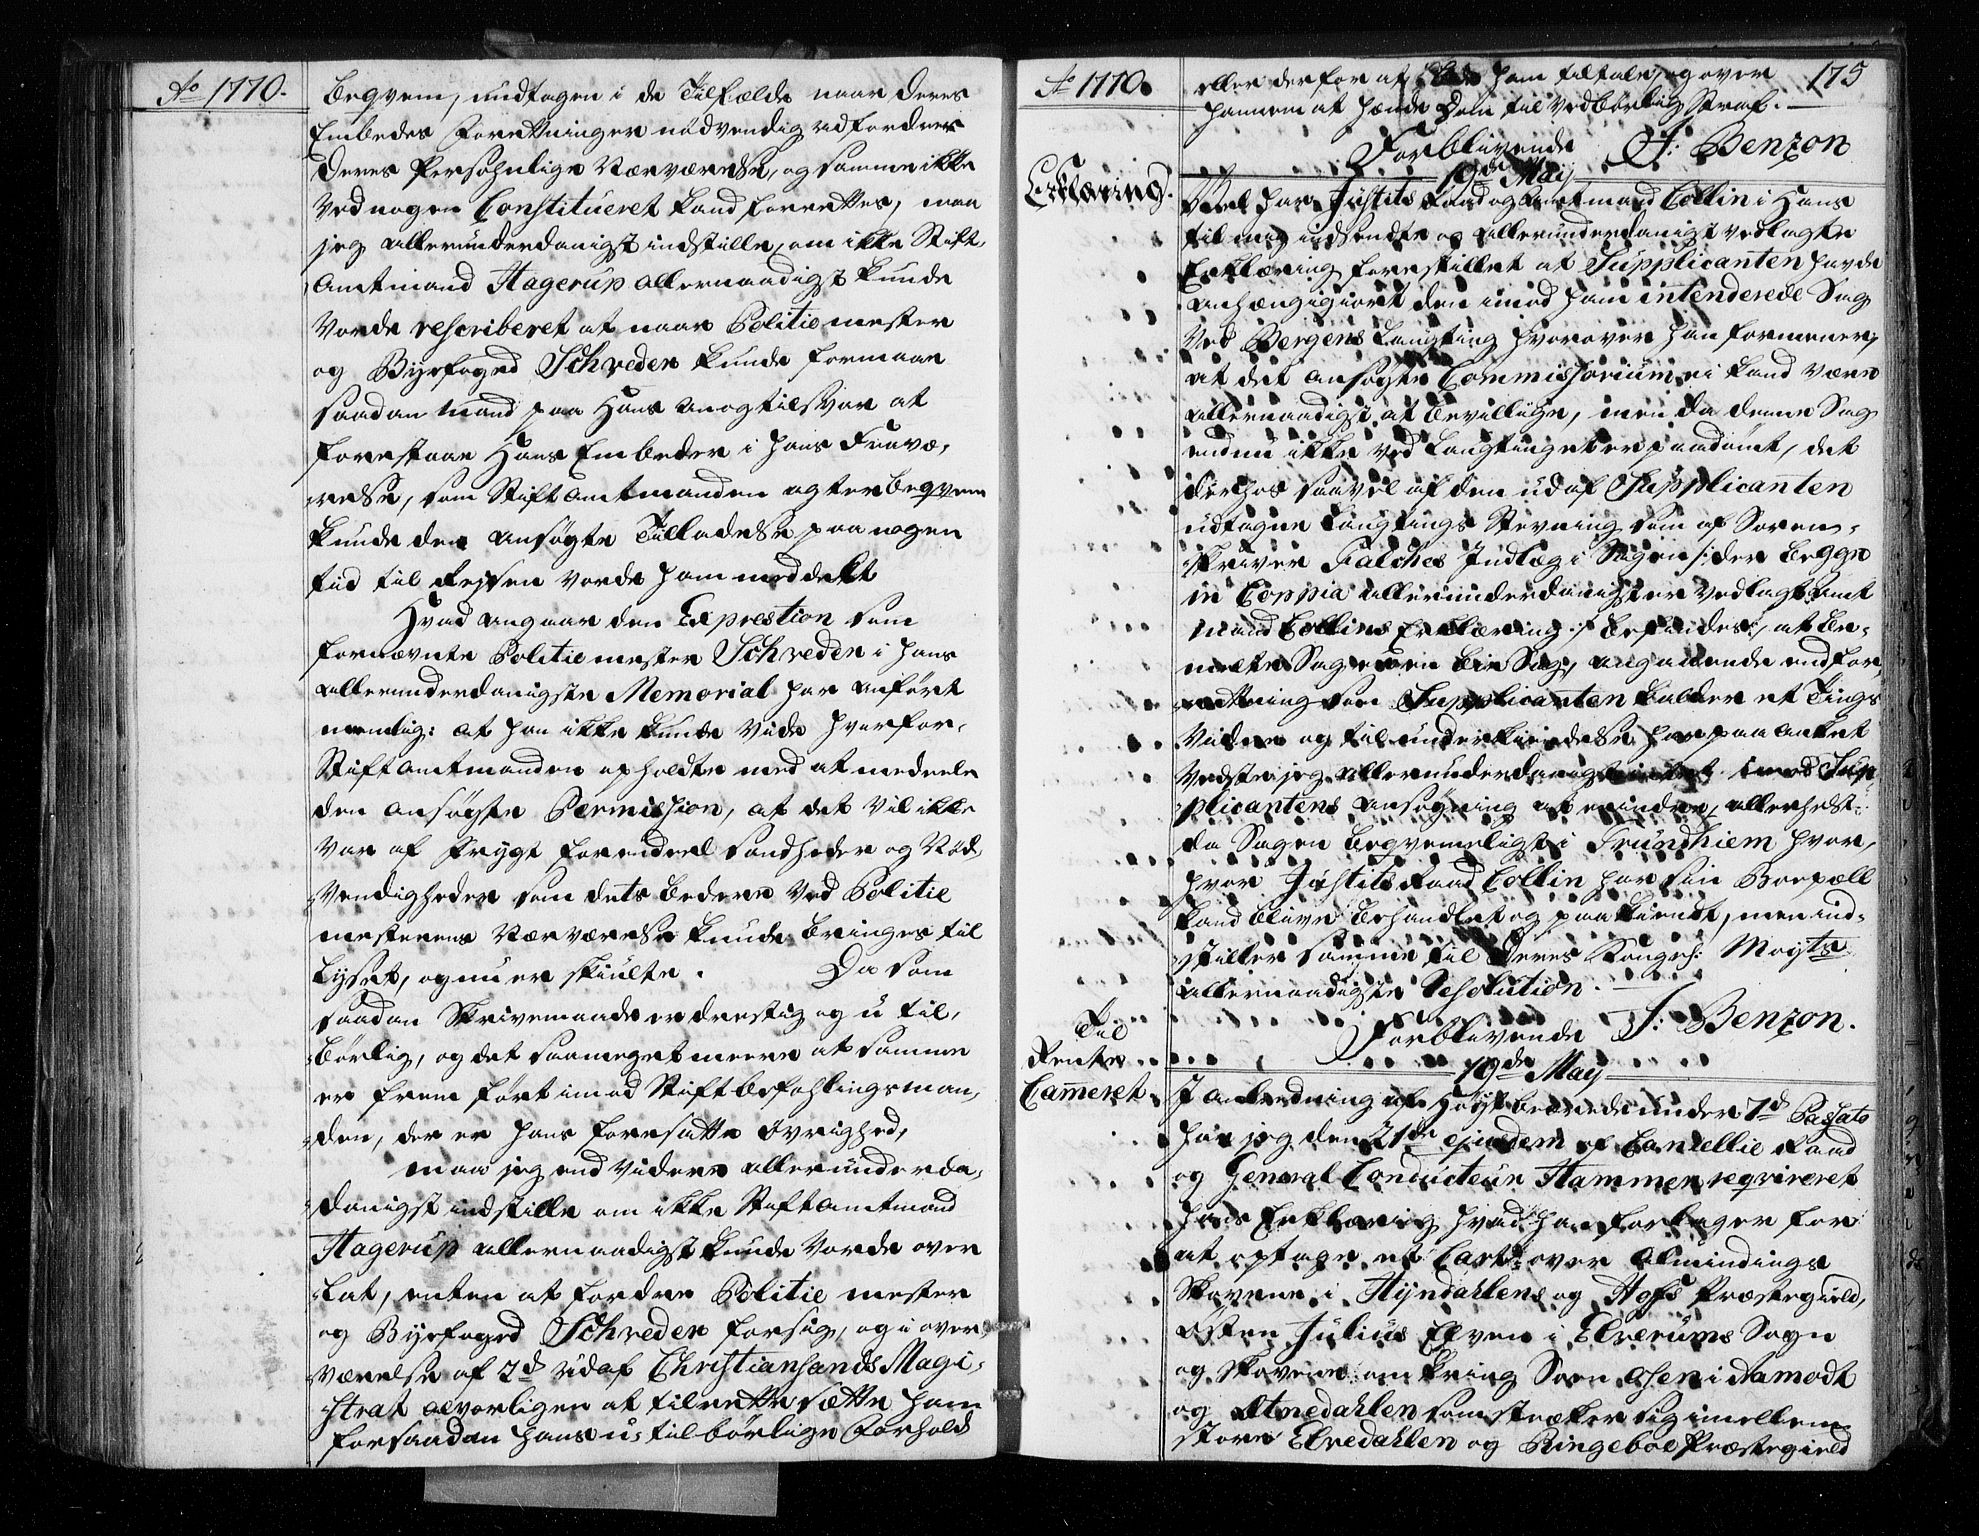 Ao 1770.
beqvem, undtagen i de Tilfælde naar deres
Embedes Forretninger nödvendig udfordrer
deres Persohnlige Nærværelse, og samme ikke
ved nogen Constitueret kand forrettes, maa
jeg allerunderdanigst indstille, om ikke Stift-
amtmand Hagerup allernaadigst kunde
vorde rescriberet at naar Politiemester
og Byefoged Schreder kunde formaae
saadan Mand paa Hans An og tilsvar at
forestaae Hans Embeder i hans Fravæ-
relse, som Stiftamtmanden agter beqvem
kunde den ansögte Tilladelse paa nogen
tid til Rejsen vorde ham meddeelt
Hvad angaar den Exprestion som
fornævnte Politiemester Schreder i hans
allerunderdanigste Memorial har anfört
nemlig: at han ikke kunde vide hvorfor
Stiftamtmanden opholdte med at meddeele
den ansögte Permission, at det vil ikke
var af Frygt for endeel Sandheder og Nöd-
vendigheder som dets bedere ved Politie
mesterens Nærværelse kunde bringes til
Lyset, og nu er skiulte. Da som
saadan Skrivemaade er drestig og u til-
börlig, og det saameget meere at samme
er frem fört imod Stiftbefahlingsman-
den, der er hans foresatte Övrighed,
maa jeg end videre allerunderda-
danigst indstille om ikke Stiftamtmand
Hagerup allernaadigst kunde vorde over
Lat, enten at fordre Politie mester
og Byefoged Schreder for sig, og i over
værelse af 2de udaf Christiansands Magi-
strat alvorligen at tilrettesætte ham
for saadan hans u-tilbörlige Forhold
Ao 1770.
175
eller derfor at lade ham tiltale, og over
hannem at hænde Dom til vedbörlig Straf.
Forblivende J: Benzon
19de May
Erklæring.
Vel har Justits Raad og Amtmand Collin i Hans
til mig indsendte og allerunderdanigst vedlagte
Erklæring forestillet at Supplicanten havde
anhængiggiort den imod ham intenderede Sag
ved Bergens Laugting hvorover han formener,
at det ansögte Commissorium ei kand være
allernaadigst at bevillige, men da denne Sag
endnu ikke ved Laugtinget er paadömt, det
derhos saavel af den udaf Supplicanten
udtagne Laugtings Stevning som af Soren-
skriver Falches Indlæg i Sagen /: der begge
in Coppia allerunderdanigst er vedlagt Amt
mand Collins Erklæring :/ befindes, at be-
melte Sag er en bie Sag, angaaende en for-
rettning som Supplicanten kalder et Tings
Vidne og til underkiendelse har paa anket
vedste jeg allerunderdanigst intet imod Sup
plicantens ansögning at erindre, allerhelst
da Sagen beqvemmeligst i Trundhiem hvor,
hvor Justits Raad Collin har sin Boepæll
kand blive behandlet og paakiendt, men ind-
stiller samme til Deres Kongel: Mayts
allernaadigste Resolution.
Forblivende J: Benzon.
19de May
Til
Rente
Cameret
I Anledning af Höystbeærede under 7de Passato
har jeg den 21de ejusdem af Cancellie Raad
og General Conducteur Hammer reqvireret
hans Erklæring hvad han forlanger for
at optage et Cart over Almindings
Skovene i Hyndahlens og Hofs Præstegield,
östen Julius Elven i Elverums Sogn
og Skovene omkring Soen Osen i Aamodt
og Atnedahlen som strækker sig imellem
store Elvedahlen og Ringeboe Præstegield